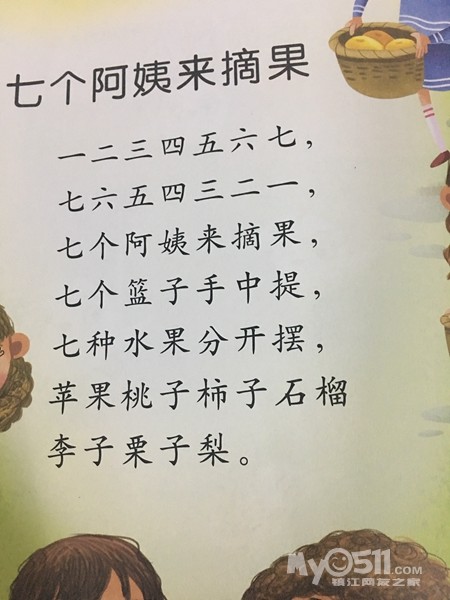 七个阿姨来摘果
一二三四五六七，
七六五四三二一，
七个阿姨来摘果，
七个篮子手中提，
七种水果分开摆，
苹果桃子柿子石榴
李子栗子梨。
My0511.com
镇江网友之家